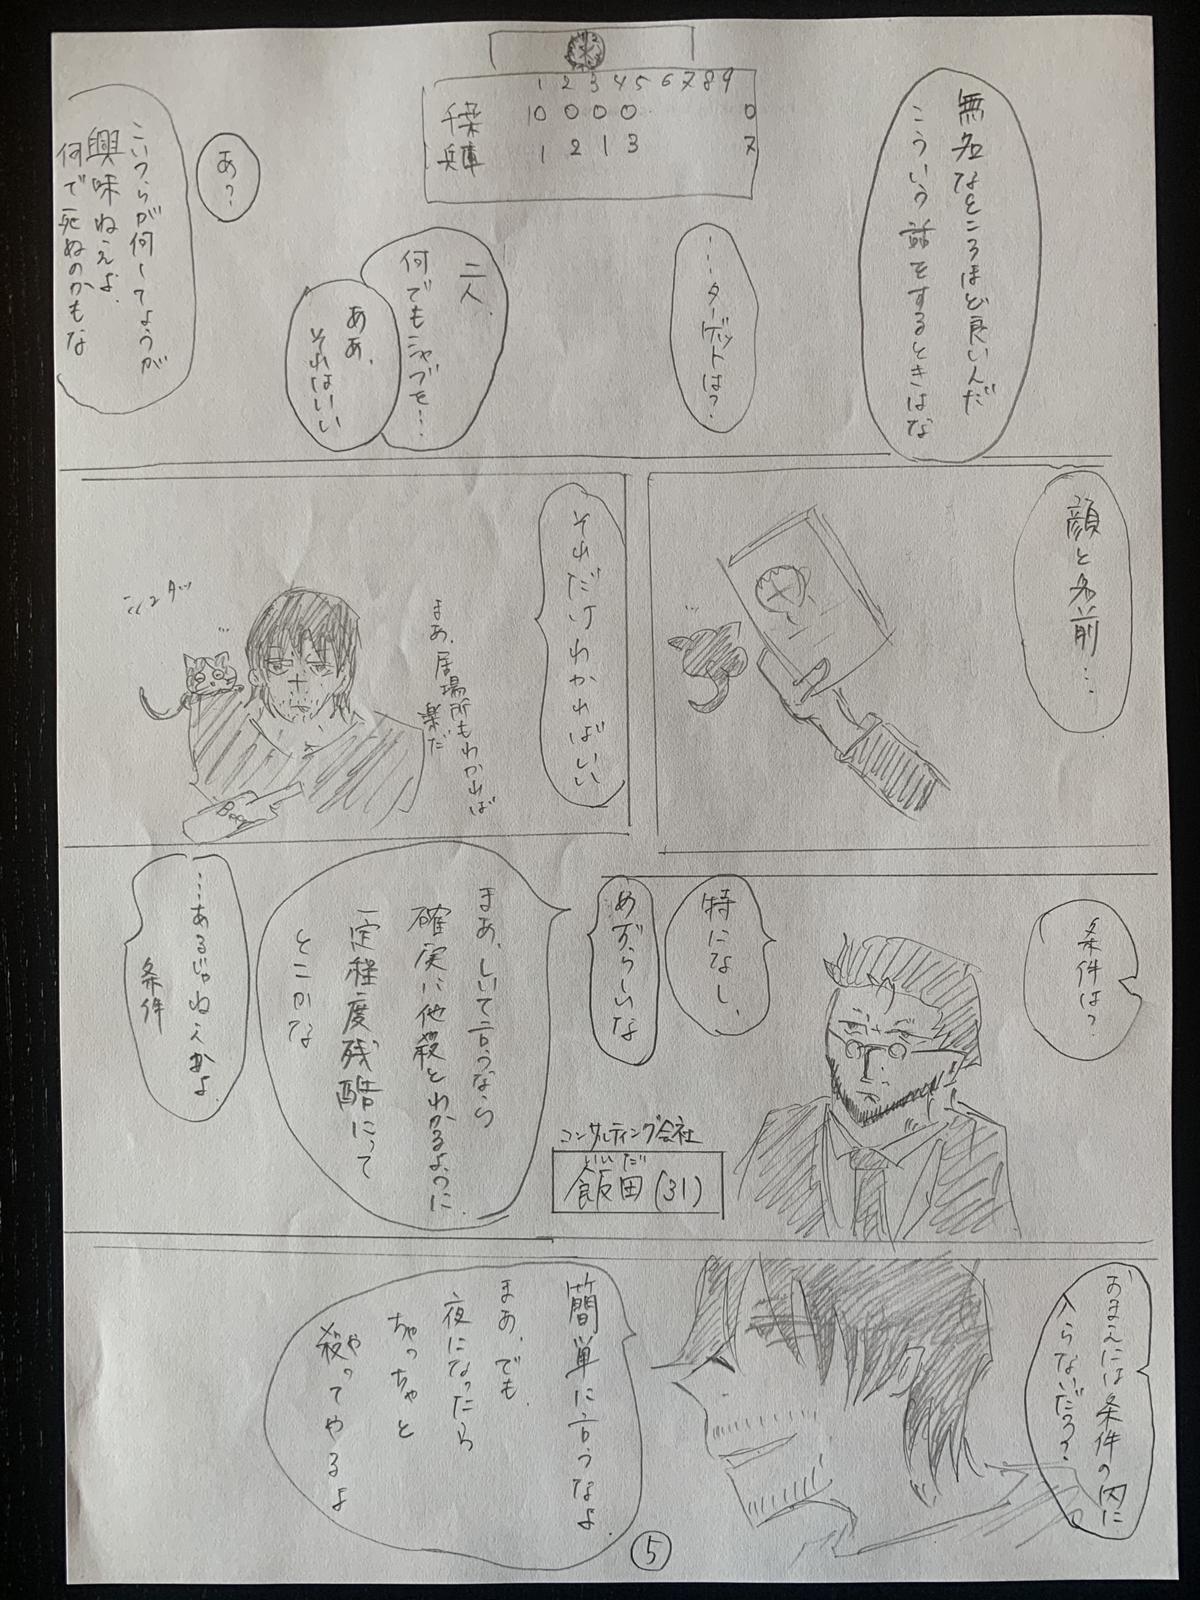 無名なところほど良いんだ
こういう話をするときはな
1 2 3 4 5 6 7 8 9
千葉 10 0 0 0 0
兵庫 1 2 1 3 7
…ターゲットは?
二人、
何でもシャブを…
ああ、
それはいい
あ?
こいつらが何してようが
興味ねえよ、
何で死ぬのかもな
顔と名前…
それだけわかればいい
まあ、居場所もわかれば
楽だ
シュタッ
条件は?
特になし、
めずらしいな
コンサルティング会社
いいだ
飯田(31)
まあ、しいて言うなら
確実に他殺とわかるように、
一定程度残酷にって
とこかな
…あるじゃねえかよ
条件
おまえには条件の内に
入らないだろ?
簡単に言うなよ、
まあ、でも、
夜になったら
ちゃっちゃと
殺ってやるよ
や
5